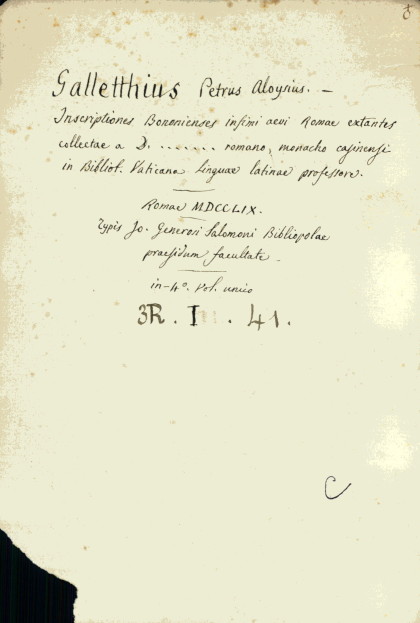 8
Galletthius Petrus Aloysius. —
Inscriptiones Bononienses infimi aevi Romae extantes
collectae a D. ....... romano, monacho casinensi
in Bibliot. Vaticana linguae latinae professore.
Romae MDCCLIX.
Typis Jo. Generosi Salomoni Bibliopolae
praesidum facultate.
in-4º. Vol. unico
3R. I . 41.
C